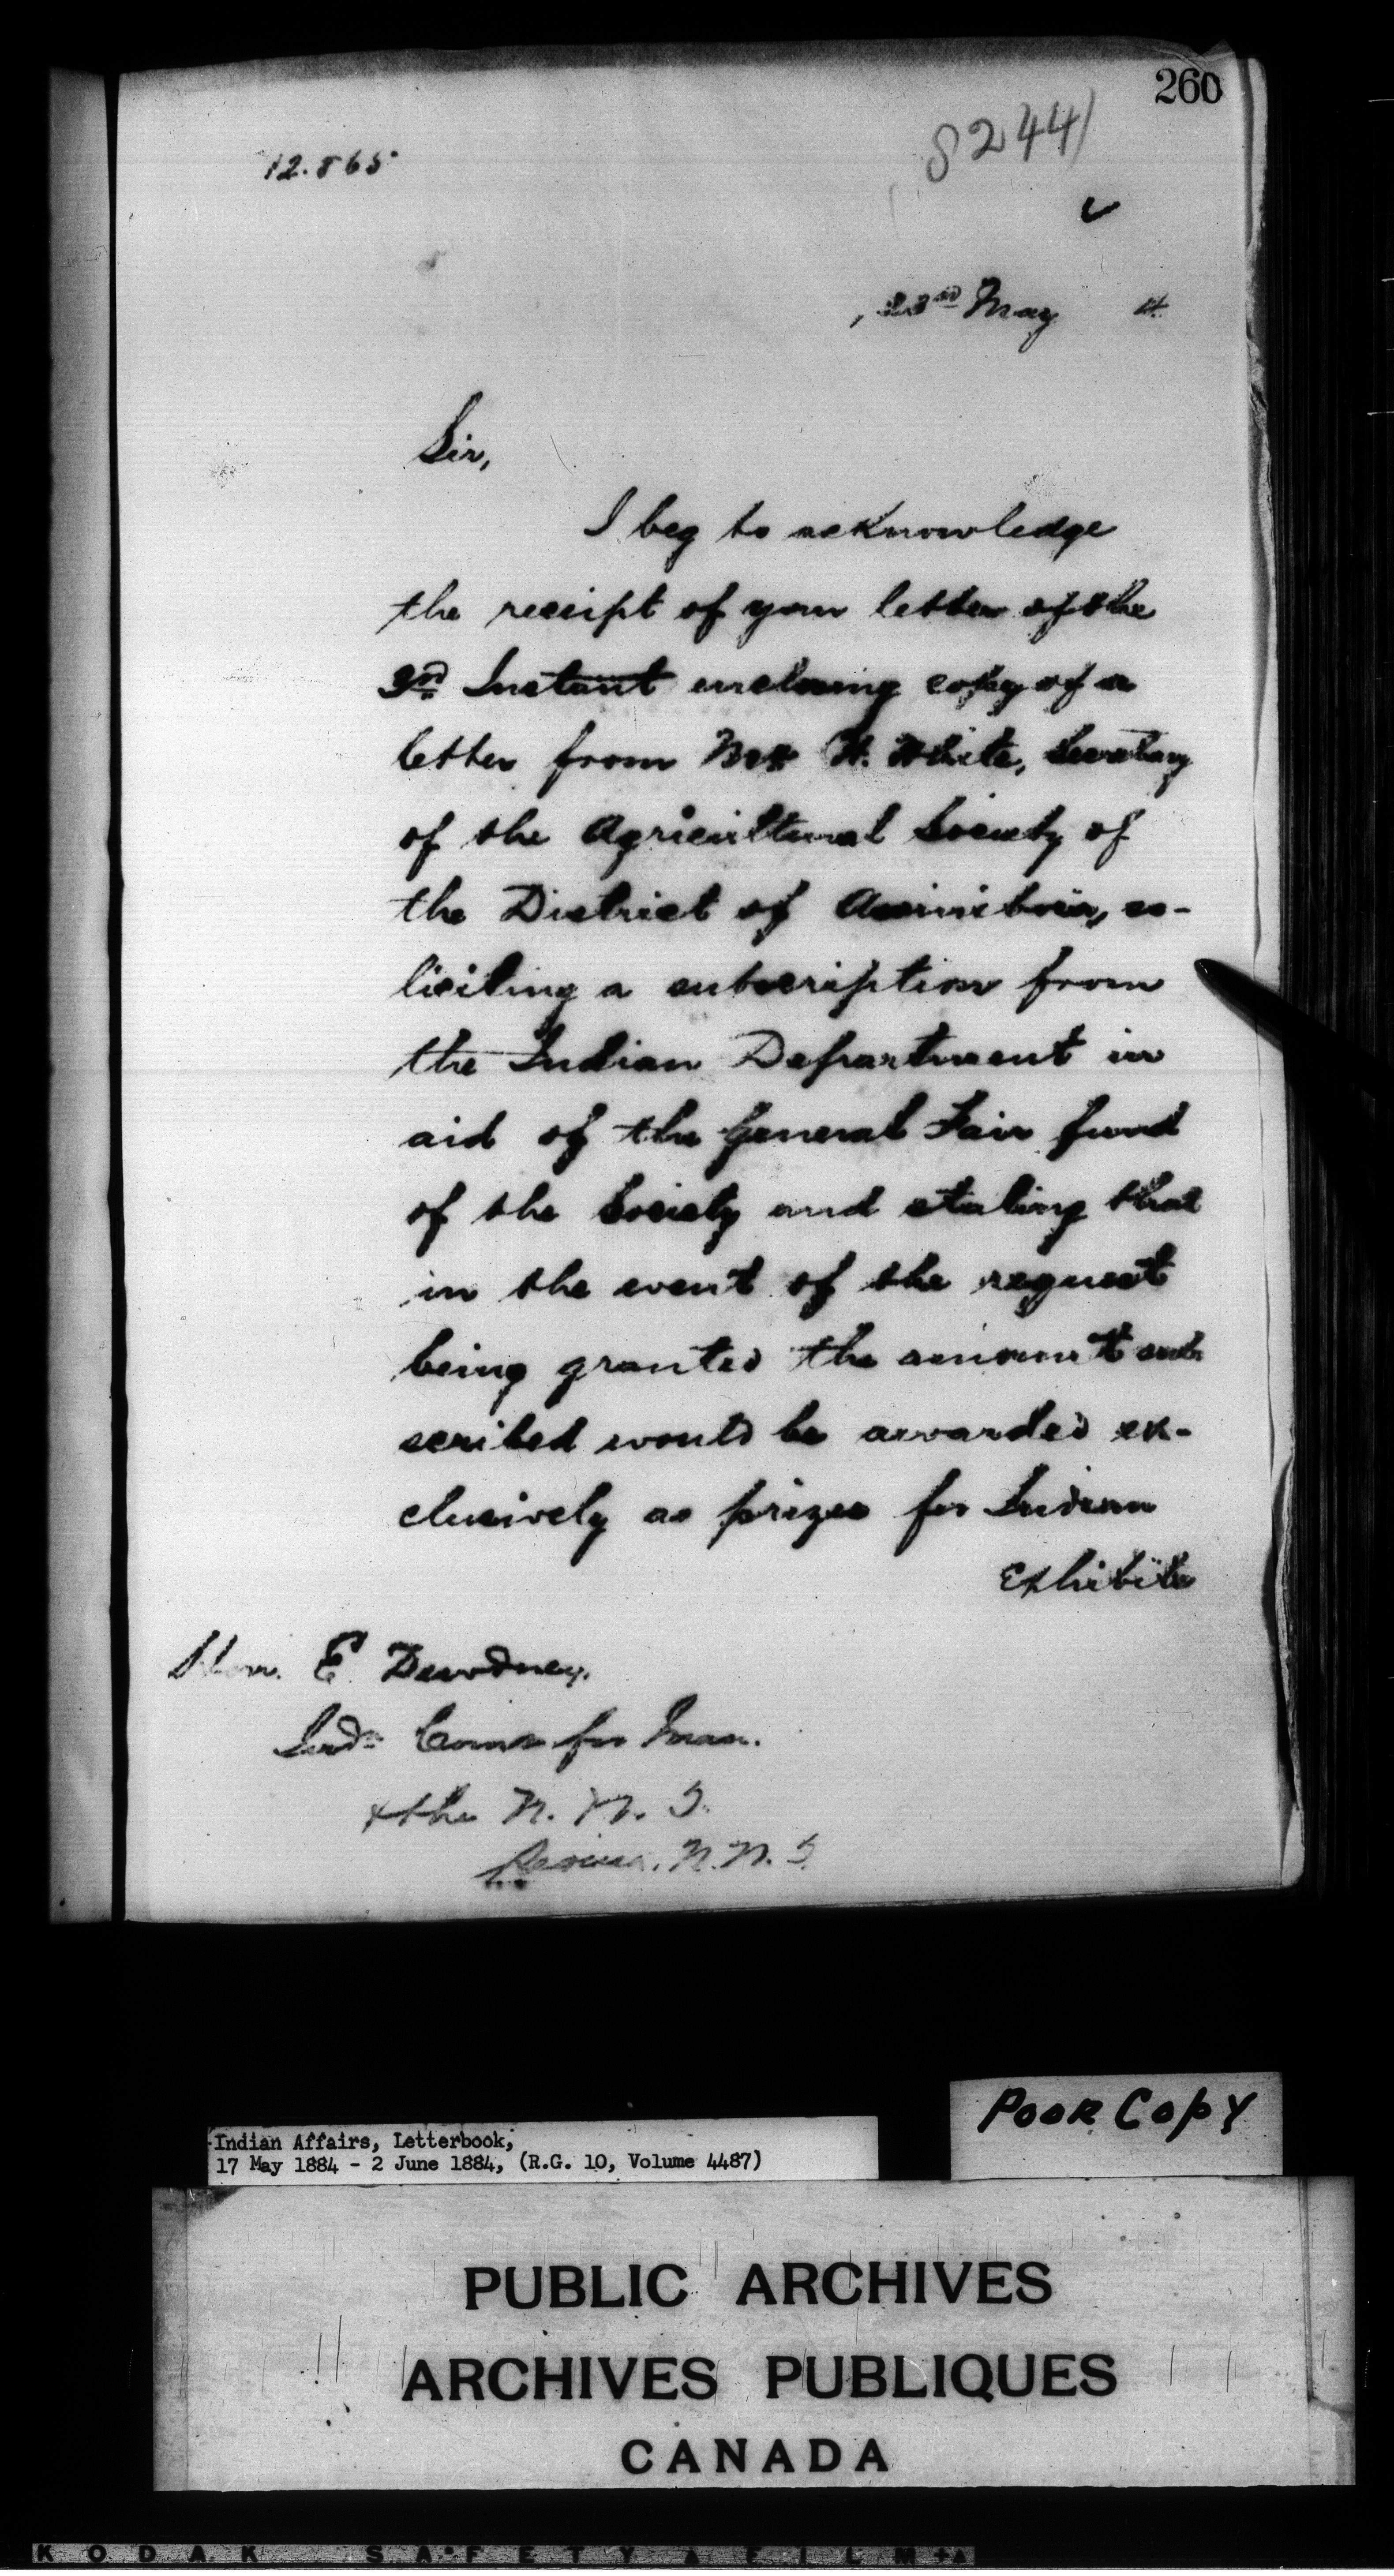 260
8244
12.865
23rd May 4
Sir,
I beg to acknowledge
the receipt of your letter of the
3rd Instant enclosing copy of a
letter from Mr W. White, Secretary
of the Agricultural Society of
the District of Assiniboia, so-
liciting a subscription from
the Indian Department in
aid of the General Fair fund
of the Society and stating that
in the event of the request
being granted the amount sub
scribed would be awarded ex-
clusively as prizes for Indian
Exhibits
Hon. E Dewdney,
Indn Comr for Man.
& the N. W. T.
Regina, N.W.T.
Poor Copy
Indian Affairs, Letterbook,
17 May 1884 - 2 June 1884, (R.G. 10, Volume 4487)
PUBLIC ARCHIVES
ARCHIVES PUBLIQUES
CANADA
KODAK SAFETY FILM